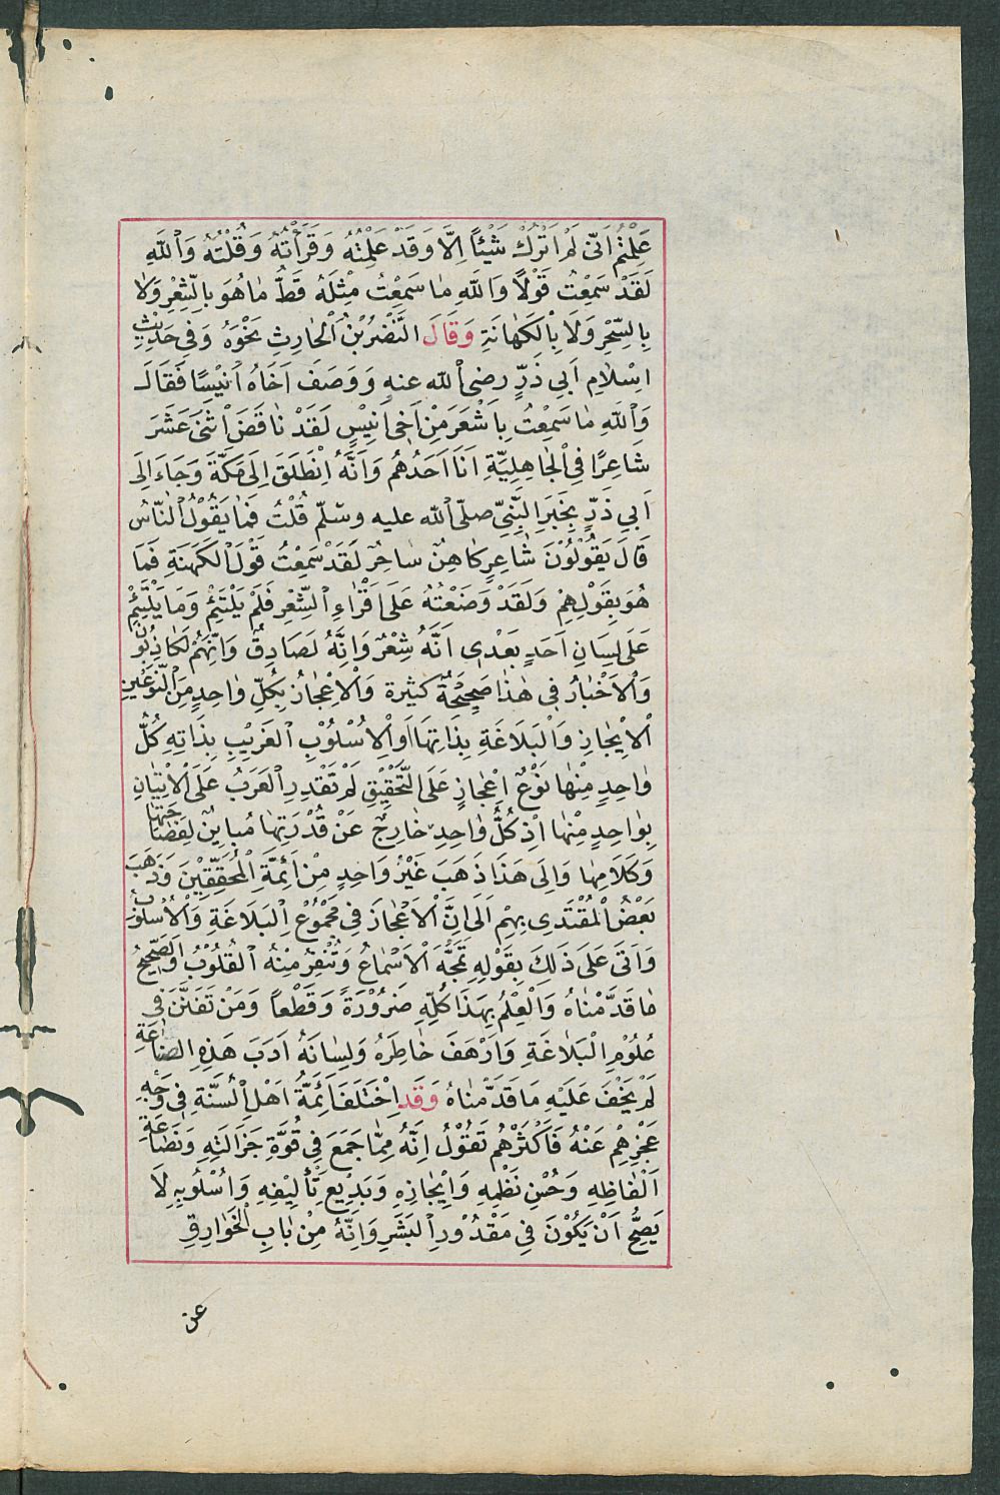 عَلِمْتُمْ اَنّى لَمْ اَتْرُكْ شَيْئًا اِلَّا وَقَدْ عَلِمْتُهُ وَقَرَأْتُهُ وَقُلْتُهُ وَاللهِ
لَقَدْ سَمِعْتُ قَوْلًا وَاللهِ مَا سَمِعْتُ مِثْلَهُ قَطُّ مَا هُوَ بِالشِّعْرِ وَلَا
بِالسِّحْرِ وَلَا بِالْكَهَانَةِ وَقَالَ النَّضْرُ بْنُ الْحَارِثِ نَحْوَهُ وَفى حَدِيْثِ
اِسْلَامِ اَبِي ذَرٍّ رضى الله عنهِ وَوَصَفَ اَخَاهُ اُنَيْسًا فَقَالَ
وَاللهِ مَا سَمِعْتُ بِاَشْعَرَ مِنْ اَخِى اُنَيْسٍ لَقَدْ نَاقَضَ اثْنَى عَشَرَ
شَاعِرًا فِى الْجَاهِلِيَّةِ اَنَا اَحَدُهُم وَاَنَّهُ انْطَلَقَ اِلَى مَكَّةَ وَجَاءَ اِلَى
اَبِي ذَرٍّ بِخَبَرِ النَّبِىِّ صلّى الله عليه وسلّم قُلْتُ فَمَا يَقُوْلُ النَّاسُ
قَالَ يَقُوْلُوْنَ شَاعِر كَاهِنٌ سَاحِرٌ لَقَدْ سَمِعْتُ قَوْلَ الْكَهَنَةِ فَمَا
هُوَ بِقَوْلِهِمْ وَلَقَدْ وَضَعْتُهُ عَلَى اَقْرَاءِ الشِّعْرِ فَلَمْ يَلْتَئِمْ وَمَا يَلْتَئِمُ
عَلَى لِسَانِ اَحَدٍ بَعْدِى اَنَّهُ شِعْرٌ وَاِنَّهُ لَصَادِقٌ وَاِنَّهُمْ لَكَاذِبُوْنَ
وَالْاَخْبَارُ فِى هٰذَا صَحِيْحَةٌ كَثيرة وَالْاِعْجَازُ بِكُلِّ وَاحِدٍ مِنَ النَّوْعَيْنِ
الْاِيْجَازِ وَالْبَلَاغَةِ بِذَاتِهَا اَوِ الْاُسْلُوْبِ الْغَرِيْبِ بِذَاتِهِ كُلُّ
وَاحِدٍ مِنْهَا نَوْعُ اِعْجَازٍ عَلَى التَّحْقِيْقِ لَمْ تَقْدِرِ الْعَرَبُ عَلَى الْاِتْيَانِ
بِوَاحِدٍ مِنْهَا اِذْ كُلُّ وَاحِدٍ خَارِجٌ عَنْ قُدْرَتِهَا مُبَايِنٌ لِفَصَاحَتِهَا
وَكَلَامِهَا وَاِلَى هَذَا ذَهَبَ غَيْرُ وَاحِدٍ مِنْ اَئِمَّةِ الْمُحَقِّقِيْنَ وَذَهَبَ
بَعْضُ الْمُقْتَدَى بِهِمْ اِلَى اِنَّ الْاَعْجَازَ فِى مَجْمُوْعِ الْبَلَاغَةِ وَالْاُسْلُوْبِ
وَاَتَى عَلَى ذَلِكَ بِقَوْلِهِ تَمُجُّهُ الْاَسْمَاعُ وَتُنْفِرُ مِنْهُ الْقُلُوْبُ اوالصَّحِيْحُ
مَا قَدَّمْنَاهُ وَالْعِلْمُ بِهَذَا كُلِّهِ ضَرُوْرَةً وَقَطْعًا وَمَنْ تَفَنَّنَ فِى
عُلُوْمِ الْبَلَاغَةِ وَاَرْهَفَ خَاطِرَهُ وَلِسَانَهُ اَدَبَ هَذِهِ الصِّنَاعَةِ
لَمْ يَخْفَ عَلَيْهِ مَا قَدَّمْنَاهُ وَقَدِ اخْتَلَفَ اَئِمَّةُ اَهْلِ السُّنَّةِ فِى وَجْهِ
عَجْزِهِمْ عَنْهُ فَاَكْثَرُهُم تَقُوْلُ اِنَّهُ مِمَّا جَمَعَ فِى قُوَّةِ جَزَالَتِهِ وَنَصَاعَةِ
اَلْفَاظِهِ وَحُسْنِ نَظْمِهِ وَاِيْجَازِهِ وَبَدِيْعِ تَأْلِيْفِهِ وَاُسْلُوبِهِ لَا
يَصِحُّ اَنْ يَكُوْنَ فِى مَقْدُوْرِ الْبَشَرِ وَاِنَّهُ مِنْ بَابِ الْخَوَارِقِ
عن